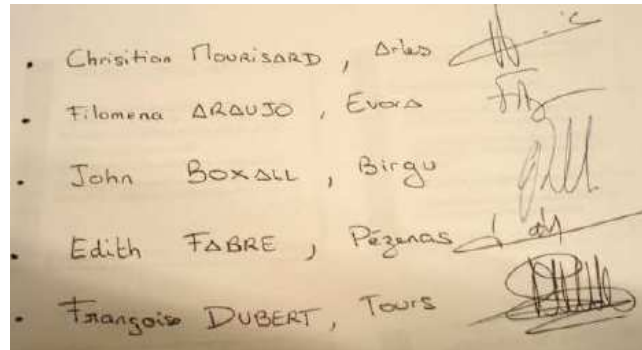 • Chrisitian MOURISARD, Arles
• Filomena ARAUJO, Evora
• John BOXALL, Birgu
• Edith FABRE, Pézenas
• Françoise DUBERT, Tours